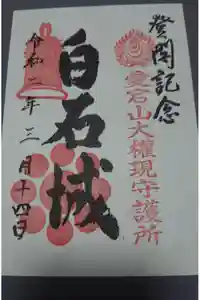 登閣記念
愛宕山大権現守護所
白石城
令和二年三月十四日